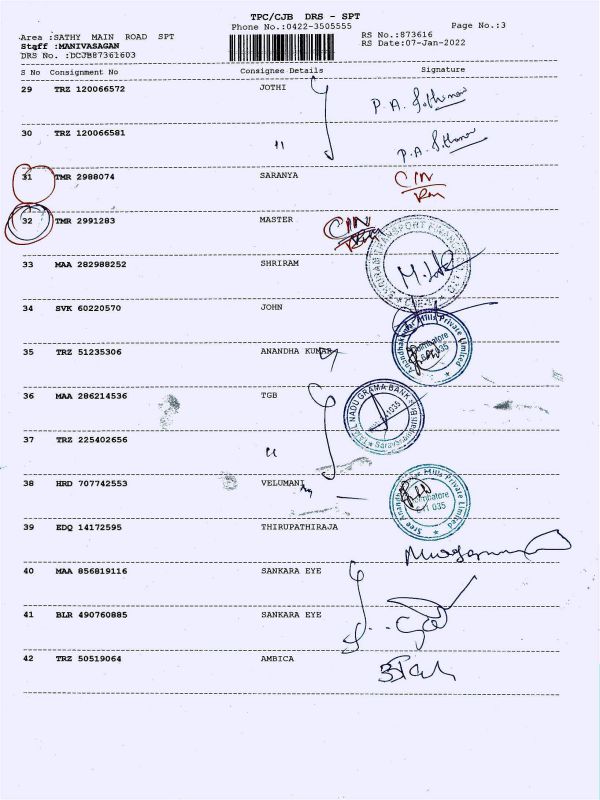 TPC/CJB DRS - SPT
Phone No.:0422-3505555
Page No.:3
Area :SATHY MAIN ROAD SPT
RS No.:873616
Staff :MANIVASAGAN
RS Date:07-Jan-2022
DRS No. :DCJB87361603
S No Consignment No Consignee Details Signature
29 TRZ 120066572 JOTHI
30 TRZ 120066581 "
31 TMR 2988074 SARANYA CIN
32 TMR 2991283 MASTER CIN
33 MAA 282988252 SHRIRAM
34 SVK 60220570 JOHN
35 TRZ 51235306 ANANDHA KUMAR
Mills Private Limited
Coimbatore
641 035
36 MAA 286214536 TGB
TAMIL NADU GRAMA BANK
37 TRZ 225402656 "
38 HRD 707742553 VELUMANI
Sree Anandhakumar Mills Private Limited
Coimbatore
641 035
39 EDQ 14172595 THIRUPATHIRAJA
40 MAA 856819116 SANKARA EYE
41 BLR 490760885 SANKARA EYE
42 TRZ 50519064 AMBICA